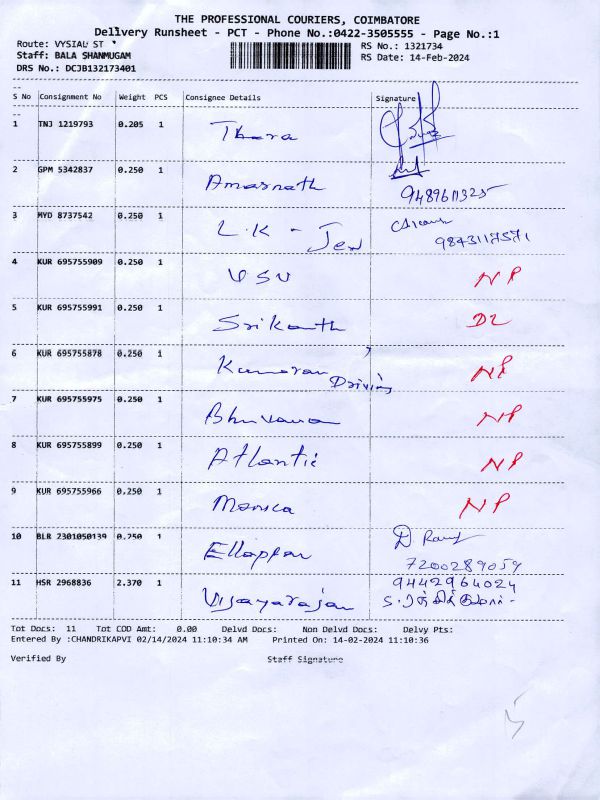 THE PROFESSIONAL COURIERS, COIMBATORE
Delivery Runsheet - PCT - Phone No.:0422-3505555 - Page No.:1
Route: VYSIAL ST RS No.: 1321734
Staff: BALA SHANMUGAM RS Date: 14-Feb-2024
DRS No.: DCJB132173401
S No Consignment No Weight PCS Consignee Details Signature
1 TNJ 1219793 0.205 1 Thara
2 GPM 5342837 0.250 1 Amarnath 9489611325
3 MYD 8737542 0.250 1 L.K - Jew 9843117571
4 KUR 695755909 0.250 1 VSV NP
5 KUR 695755991 0.250 1 Srikanth DL
6 KUR 695755878 0.250 1 Kumaran Driving NP
7 KUR 695755975 0.250 1 Bhuvana NP
8 KUR 695755899 0.250 1 Atlantic NP
9 KUR 695755966 0.250 1 Monica NP
10 BLR 2301050139 0.250 1 Ellappan 7200289059
11 HSR 2968836 2.370 1 Vijayarajan 9442964024
Tot Docs: 11 Tot COD Amt: 0.00 Delvd Docs: Non Delvd Docs: Delvy Pts:
Entered By :CHANDRIKAPVI 02/14/2024 11:10:34 AM Printed On: 14-02-2024 11:10:36
Verified By Staff Signature